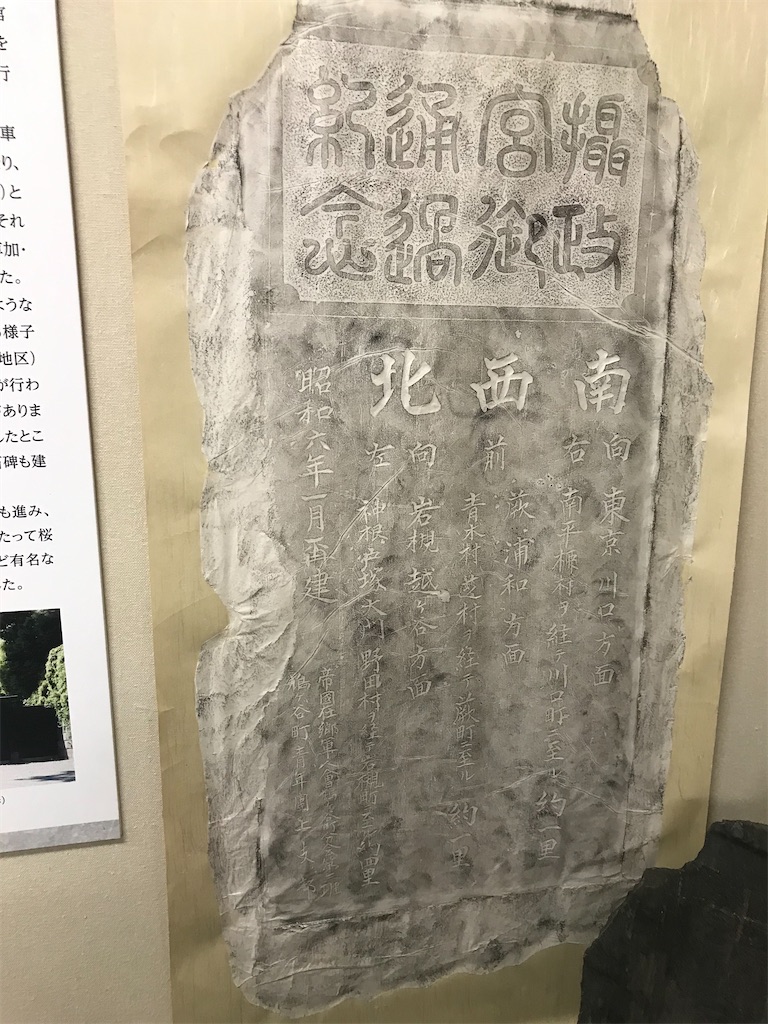 攝政
宮御
通過
紀念
南 向 東京 川口 方面
右 南平柳村ヲ経テ川口町ニ至ル 約一里
西 前 蕨 浦和 方面
青木村 芝村ヲ経テ 蕨町ニ至ル 約一里
北 向 岩槻 越ヶ谷方面
左 神根 戸塚 大門 野田村ヲ経テ岩槻町ニ至ル約四里
昭和六年一月再建
帝國在郷軍人會
鳩ヶ谷町青年團
宮
を
行
車
り、
)と
それ
草加・
た。
ような
様子
地区)
が行わ
がありま
したとこ
石碑も建
も進み、
たって桜
ど有名な
た。